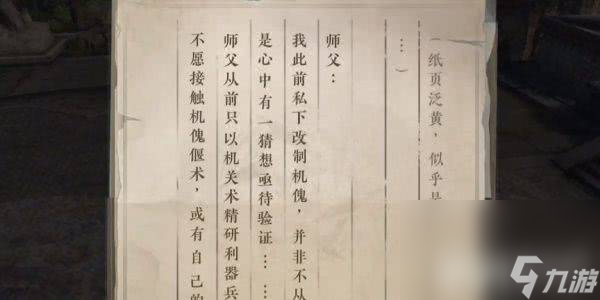 （纸页泛黄，似乎是
…）
师父：
我此前私下改制机傀，并非不从
是心中有一猜想亟待验证……
师父从前只以机关术精研利器兵
不愿接触机傀偃术，或有自己的
九游